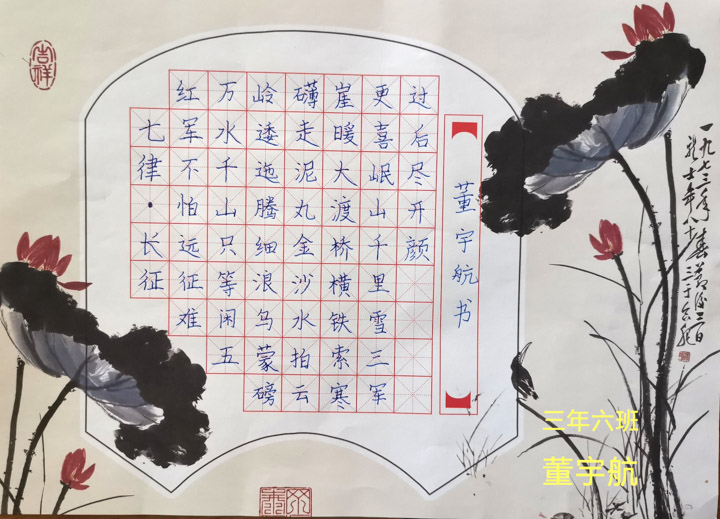 吉祥
七律·长征
红军不怕远征难
万水千山只等闲五
岭逶迤腾细浪乌蒙磅
礴走泥丸金沙水拍云
崖暖大渡桥横铁索寒
更喜岷山千里雪三军
过后尽开颜
董宇航书
一九七三年
三年六班
董宇航